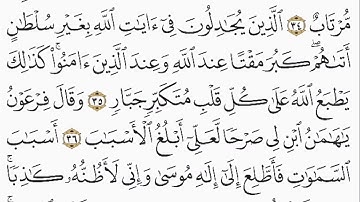 مُّرْتَابٌ ٣٤ ٱلَّذِينَ يُجَٰدِلُونَ فِىٓ ءَايَٰتِ ٱللَّهِ بِغَيْرِ سُلْطَٰنٍ
أَتَىٰهُمْ ۖ كَبُرَ مَقْتًا عِندَ ٱللَّهِ وَعِندَ ٱلَّذِينَ ءَامَنُوا۟ ۚ كَذَٰلِكَ
يَطْبَعُ ٱللَّهُ عَلَىٰ كُلِّ قَلْبِ مُتَكَبِّرٍ جَبَّارٍ ٣٥ وَقَالَ فِرْعَوْنُ
يَٰهَٰمَٰنُ ٱبْنِ لِى صَرْحًا لَّعَلِّىٓ أَبْلُغُ ٱلْأَسْبَٰبَ ٣٦ أَسْبَٰبَ
ٱلسَّمَٰوَٰتِ فَأَطَّلِعَ إِلَىٰٓ إِلَٰهِ مُوسَىٰ وَإِنِّى لَأَظُنُّهُۥ كَٰذِبًا ۚ